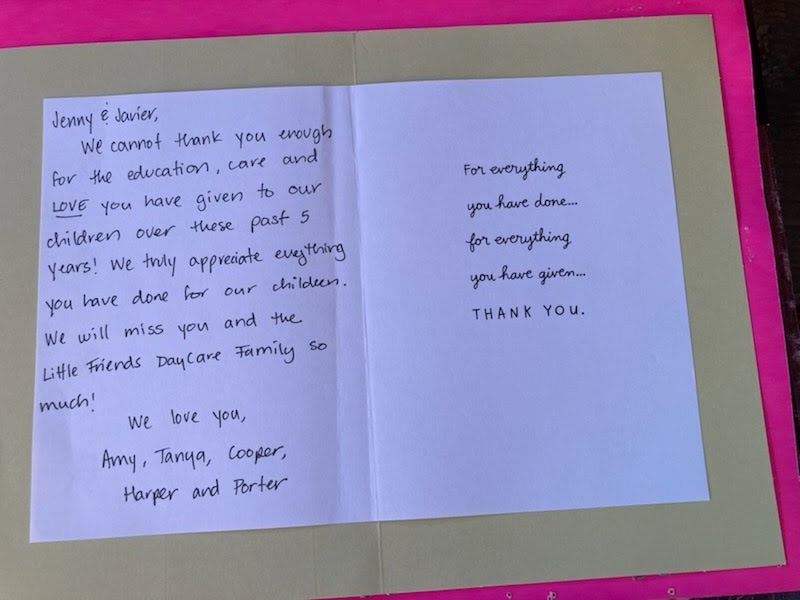 Jenny & Javier,
We cannot thank you enough
for the education, care and
LOVE you have given to our
children over these past 5
years! We truly appreciate everything
you have done for our children.
We will miss you and the
Little Friends DayCare Family so
much!
We love you,
Amy, Tanya, Cooper,
Harper and Porter
For everything
you have done...
for everything
you have given...
THANK YOU.